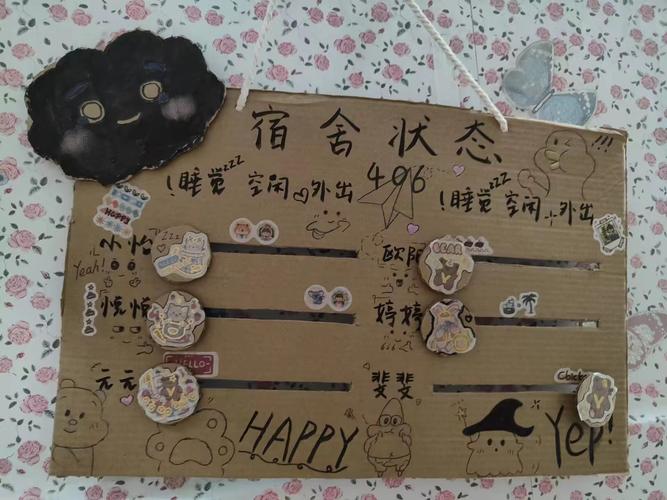 宿舍状态
406
!睡觉zzz 空闲 外出
!睡觉zzz 空闲 外出
!!!
HAPPY
小怡
zzz
Yeah!
欧阳
BEAR
悦悦
婷婷
HELLO
元元
斐斐
Chicken
HAPPY
Yep!